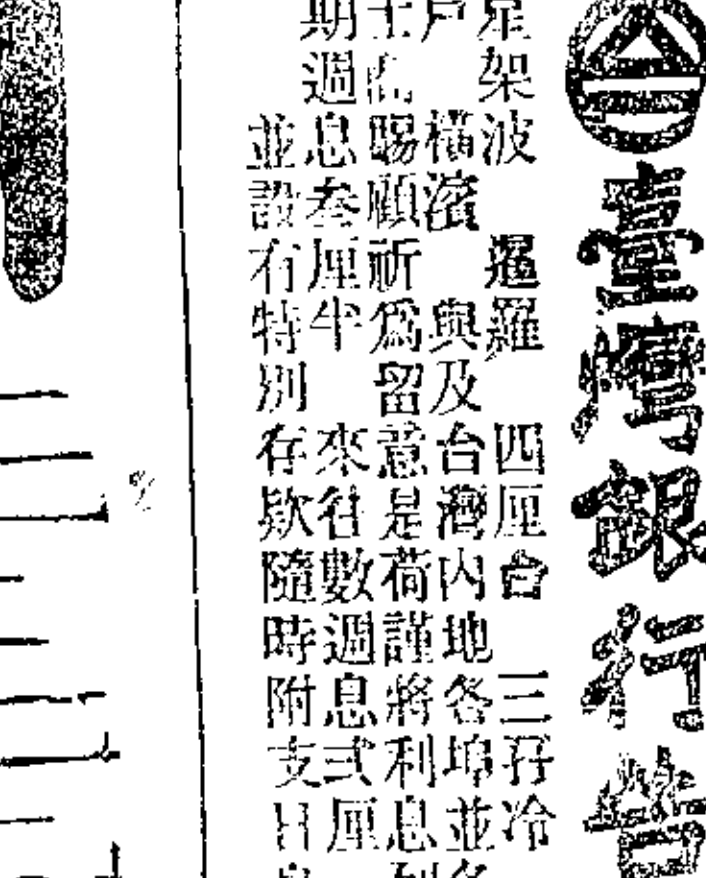 臺灣銀行營
星架波 暹羅 四厘台 三孖冷
戶 橫濱 與及台灣內地各埠並各
士 賜顧祈爲留意是荷謹將利息列
期週息叁厘半 來往數週息弍厘
並設有特別存欵隨時附支日息